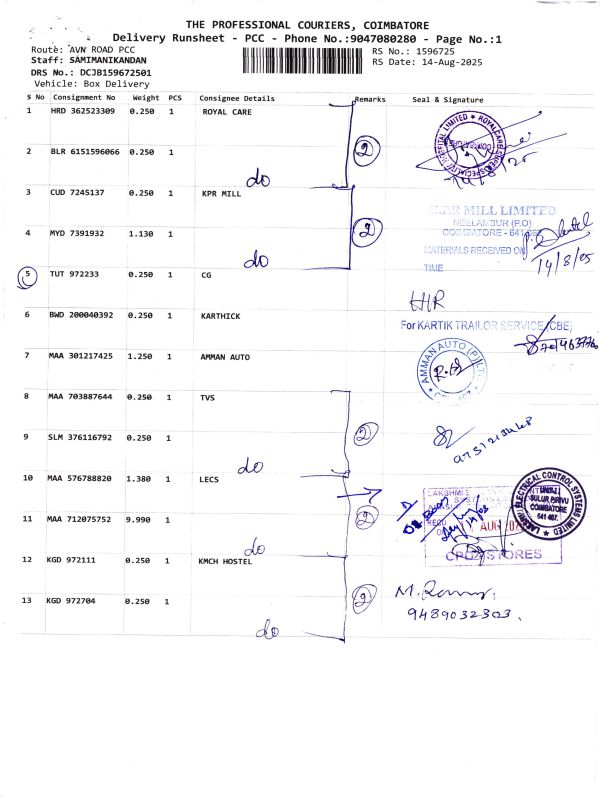 THE PROFESSIONAL COURIERS, COIMBATORE
Delivery Runsheet - PCC - Phone No.:9047080280 - Page No.:1
Route: AVN ROAD PCC
RS No.: 1596725
Staff: SAMIMANIKANDAN
RS Date: 14-Aug-2025
DRS No.: DCJB159672501
Vehicle: Box Delivery
S No Consignment No Weight PCS Consignee Details Remarks Seal & Signature
1 HRD 362523309 0.250 1 ROYAL CARE
2
2 BLR 6151596066 0.250 1
do
3 CUD 7245137 0.250 1 KPR MILL
2
KPR MILL LIMITED
NEELAMBUR (P.O)
COIMBATORE - 641 062
MATERIALS RECEIVED ON
TIME
14/8/25
4 MYD 7391932 1.130 1
do
5 TUT 972233 0.250 1 CG
H/R
6 BWD 200040392 0.250 1 KARTHICK
For KARTIK TRAILOR SERVICE (CBE)
7 MAA 301217425 1.250 1 AMMAN AUTO
AMMAN AUTO (P) LTD
8 MAA 703887644 0.250 1 TVS
2
9 SLM 376116792 0.250 1
do
10 MAA 576788820 1.380 1 LECS
2
LAKSHMI ELECTRICAL CONTROL SYSTEMS LIMITED
UNIT-I
SULUR PIRIVU
COIMBATORE
641 407.
AUG
STORES
11 MAA 712075752 9.990 1
do
12 KGD 972111 0.250 1 KMCH HOSTEL
2
9489032303.
13 KGD 972704 0.250 1
do